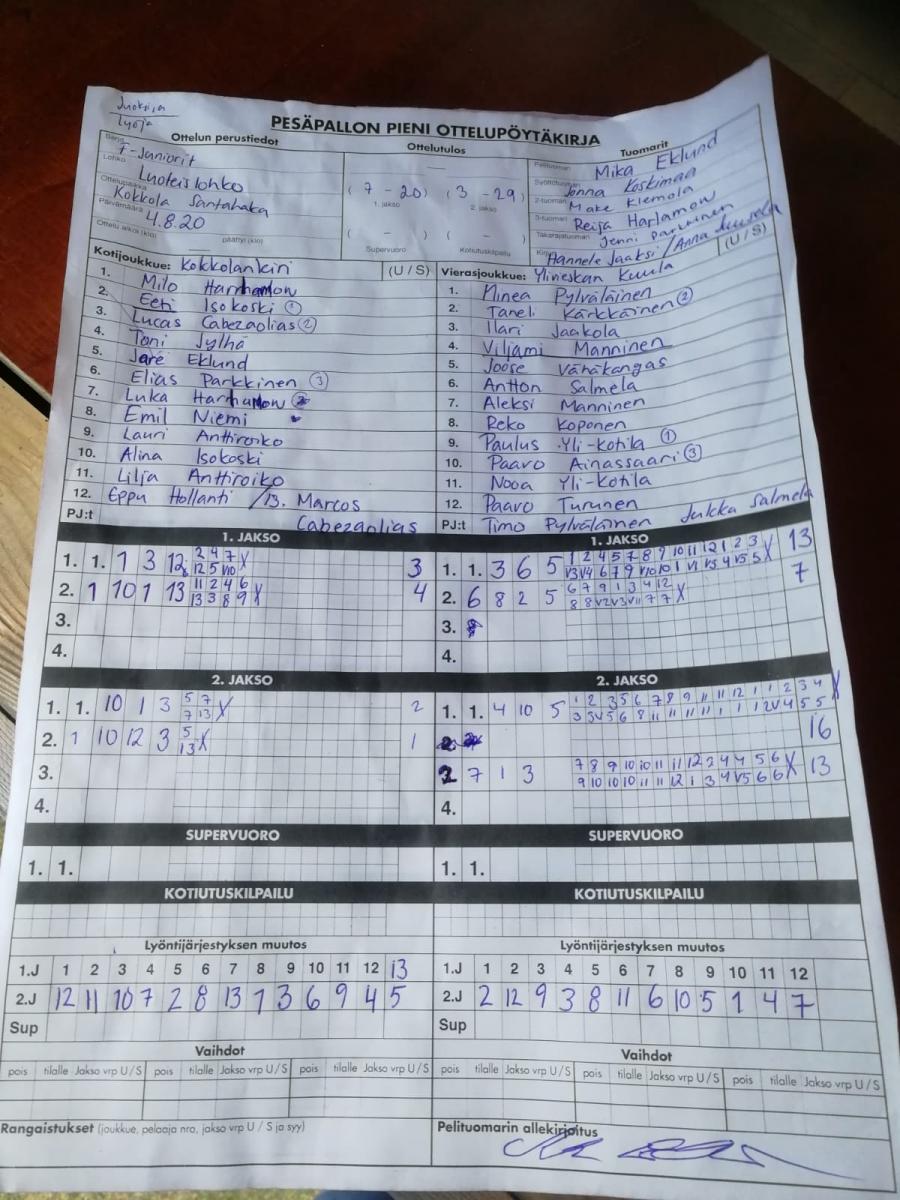 Juoksija
Lyöjä
PESÄPALLON PIENI OTTELUPÖYTÄKIRJA
Ottelun perustiedot
Ottelutulos
Tuomarit
Sarja F-Juniorit
Lohko Luoteislohko
Ottelupaikka Kokkola Santahaka
Päivämäärä 4.8.20
Ottelu alkoi (klo) päättyi (klo)
( 7 - 20) ( 3 - 29)
1. jakso 2. jakso
( - ) ( - )
Supervuoro Kotiutuskilpailu
Pelituomari Mika Eklund
Syöttötuomari Jonna Koskimaa
2-tuomari Make Klemola
3-tuomari Reija Harlamow
Takarajatuomari Jenni Parkkinen
Hannele Jaaksi / Anna
Kotijoukkue: Kokkolankiri (U / S)
1. Milo Harlamow
2. Eeti Isokoski 1
3. Lucas Cabezaolias 2
4. Toni Jylhä
5. Jare Eklund
6. Elias Parkkinen 3
7. Luka Harlamow
8. Emil Niemi
9. Lauri Anttiroiko
10. Alina Isokoski
11. Lilja Anttiroiko
12. Eppu Hollanti / 13. Marcos
PJ:t Cabezaolias
Vierasjoukkue: Ylivieskan Kuula (U / S)
1. Minea Pylväläinen
2. Taneli Kärkkäinen 2
3. Ilari Jaakola
4. Viljami Manninen
5. Joose Vähäkangas
6. Antton Salmela
7. Aleksi Manninen
8. Reko Koponen
9. Paulus Yli-Kotila 1
10. Paavo Ainassaari 3
11. Nooa Yli-Kotila
12. Paavo Turunen
PJ:t Timo Pylväläinen Jukka Salmela
1. JAKSO
1. 1. 1 3 12 2 4 7 X 3
12 5 V10
2. 1 10 1 13 11 2 4 6 X 4
13 3 8 9
3.
4.
1. JAKSO
1. 1. 3 6 5 1 2 4 5 7 8 9 10 11 12 1 2 3 X 13
V3 V4 6 7 9 V10 10 1 V1 V5 4 V5 5
2. 6 8 2 5 6 7 9 1 3 4 12 X 7
8 8 V2 V3 V11 7 7
3.
4.
2. JAKSO
1. 1. 10 1 3 5 7 X 2
7 13
2. 1 10 12 3 5 X 1
13
3.
4.
2. JAKSO
1. 1. 4 10 5 1 2 3 5 6 7 8 9 11 11 12 1 1 2 3 4 X
3 3V 5 6 8 11 11 11 11 1 1 1 2V 4 5 5
16
2 7 1 3 7 8 9 10 10 11 11 12 3 4 4 5 6 X 13
9 10 10 10 11 11 12 1 3 4 V5 6 6
4.
SUPERVUORO
1. 1.
SUPERVUORO
1. 1.
KOTIUTUSKILPAILU
KOTIUTUSKILPAILU
Lyöntijärjestyksen muutos
1.J 1 2 3 4 5 6 7 8 9 10 11 12 13
2.J 12 11 10 7 2 8 13 1 3 6 9 4 5
Sup
Lyöntijärjestyksen muutos
1.J 1 2 3 4 5 6 7 8 9 10 11 12
2.J 2 12 9 3 8 11 6 10 5 1 4 7
Sup
Vaihdot
pois tilalle Jakso vrp U / S pois tilalle Jakso vrp U / S pois tilalle Jakso vrp U / S
Vaihdot
pois tilalle Jakso vrp U / S pois tilalle Jakso vrp U / S pois tilalle Jakso vrp U / S
Rangaistukset (joukkue, pelaaja nro, jakso vrp U / S ja syy)
Pelituomarin allekirjoitus